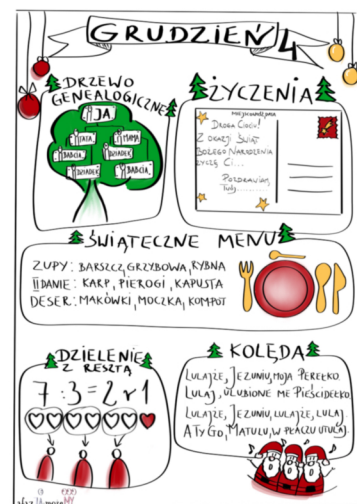 GRUDZIEŃ 4
DRZEWO
GENEALOGICZNE
JA
TATA MAMA
BABCIA DZIADEK
DZIADEK BABCIA
ŻYCZENIA
MIEJSCOWOŚĆ, DATA
DROGA CIOCIU!
Z OKAZJI ŚWIĄT
BOŻEGO NARODZENIA
ŻYCZĘ CI...
POZDRAWIAM
TWÓJ.........
ŚWIĄTECZNE MENU
ZUPY: BARSZCZ, GRZYBOWA, RYBNA
II DANIE: KARP, PIEROGI, KAPUSTA
DESER: MAKÓWKI, MOCZKA, KOMPOT
DZIELENIE
Z RESZTĄ
7 : 3 = 2 r 1
KOLĘDA
LULAJŻE, JEZUNIU, MOJA PEREŁKO
LULAJ, ULUBIONE ME PIEŚCIDEŁKO
LULAJŻE, JEZUNIU, LULAJŻE, LULAJ
A TY GO, MATULU, W PŁACZU UTULAJ